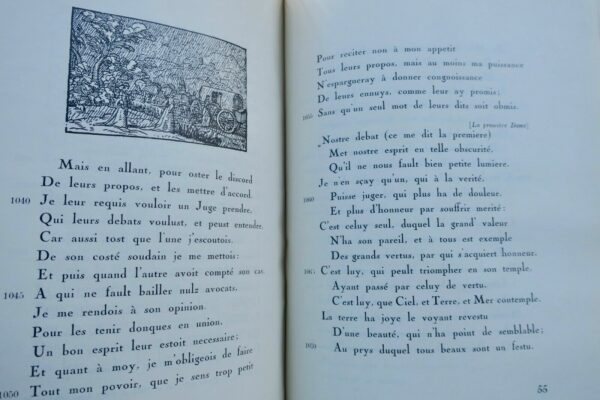 Mais en allant, pour oster le discord
De leurs propos, et les mettre d'accord,
1040 Je leur requis vouloir un Juge prendre,
Qui leurs debats voulust, et peut entendre,
Car aussi tost que l'une j'escoutois,
De son costé soudain je me mettois:
Et puis quand l'autre avoit compté son cas,
1045 A qui ne fault bailler nulz avocats,
Je me rendois à son opinion.
Pour les tenir donques en union,
Un bon esprit leur estoit necessaire;
Et quant à moy, je m'obligeois de faire
1050 Tout mon povoir, que je sens trop petit
Pour reciter non à mon appetit
Tous leurs propos, mais au moins ma puissance
N'espargneray à donner congnoissance
De leurs ennuys, comme leur ay promis;
1055 Sans qu'un seul mot de leurs dits soit obmis.
[La première Dame]
„Nostre debat (ce me dit la premiere)
Met nostre esprit en telle obscurité,
Qu'il ne nous fault bien petite lumiere.
Je n'en sçay qu'un, qui à la verité,
1060 Puisse juger, qui plus ha de douleur,
Et plus d'honneur par souffrir merité:
C'est celuy seul, duquel la grand' valeur
N'ha son pareil, et à tous est exemple
Des grands vertus, par qui s'acquiert honneur.
C'est luy, qui peult triompher en son temple,
Ayant passé par celuy de vertu.
C'est luy, que Ciel, et Terre, et Mer contemple.
La terre ha joye le voyant revestu
D'une beauté, qui n'ha point de semblable;
1070 Au prys duquel tous beaux sont un festu.
55